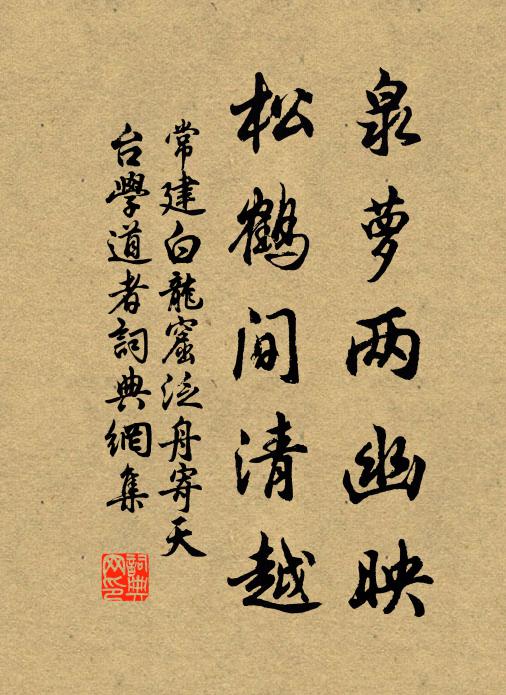 泉萝两幽映
松鹤间清越
常建白龍窟泛舟寄天
台學道者詞典網集
詞典網印